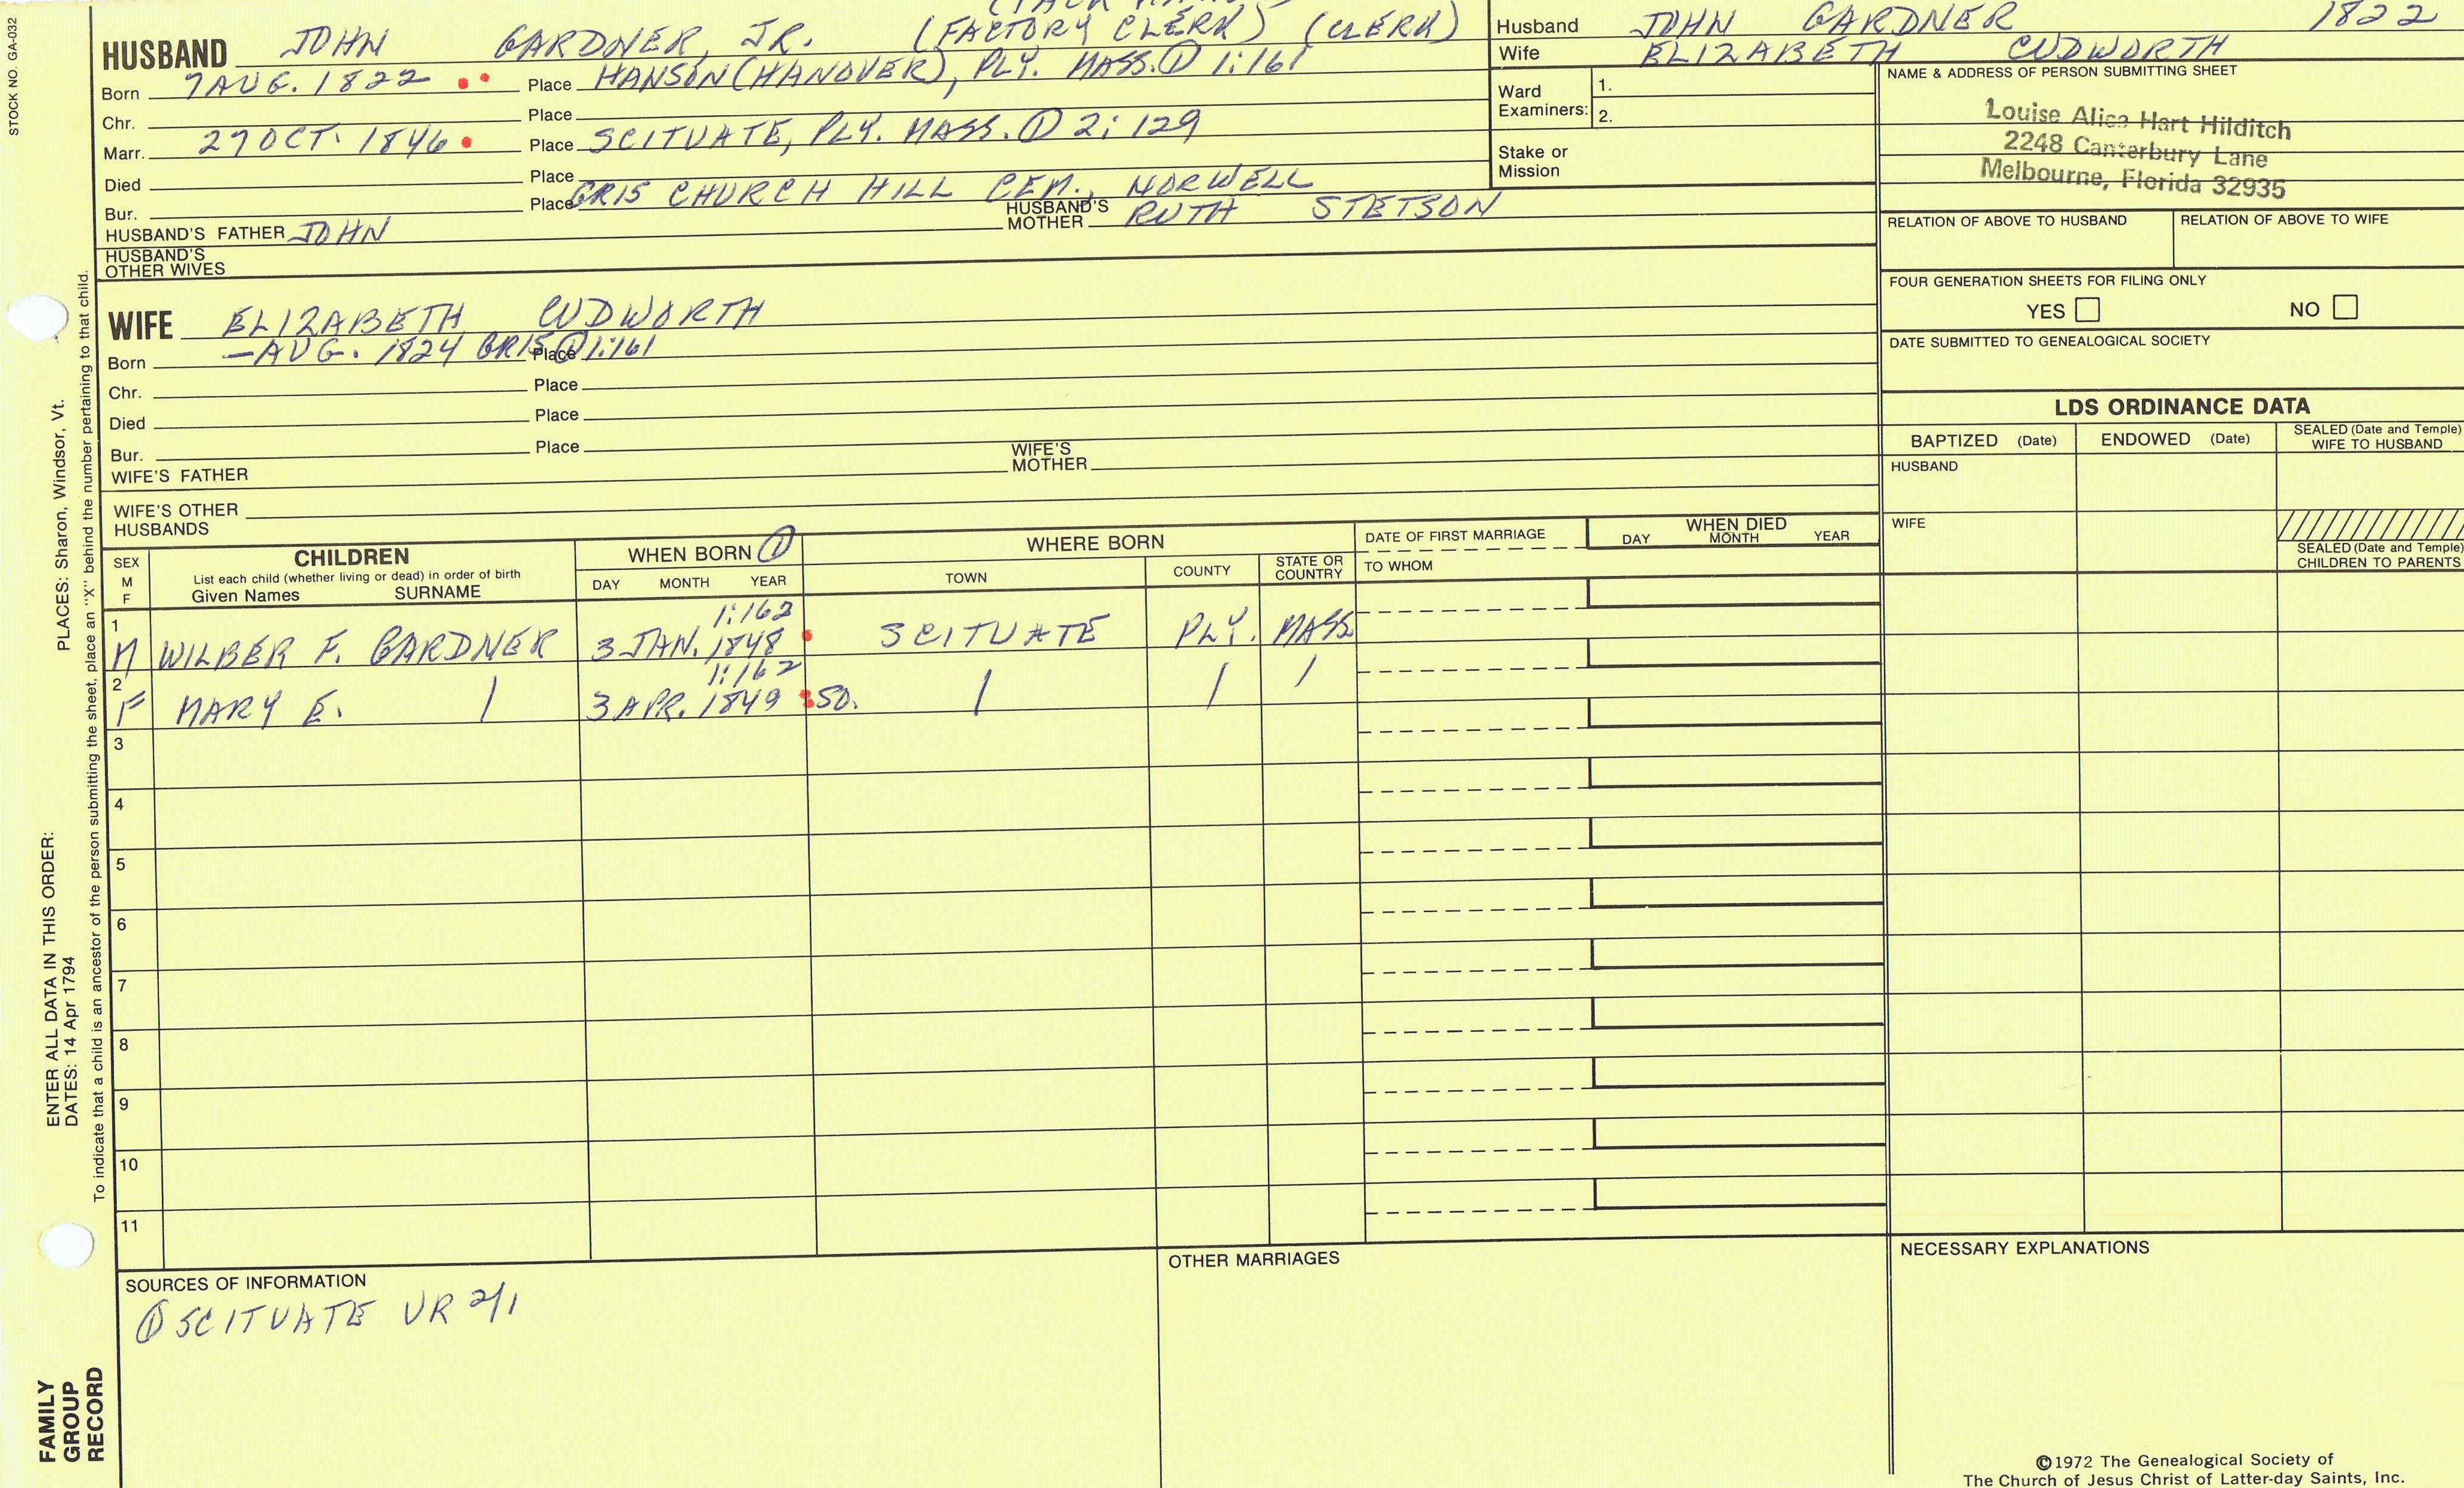 STOCK NO. GA-032
HUSBAND JOHN GARDNER, JR. (FACTORY CLERK) (CLERK)
Born 7 AUG. 1822 Place HANSON (HANOVER), PLY. MASS. ① 1:161
Chr. Place
Marr. 27 OCT. 1846 Place SCITUATE, PLY. MASS. ① 2:129
Died Place
Bur. Place GR15 CHURCH HILL CEM., NORWELL
HUSBAND'S FATHER JOHN HUSBAND'S MOTHER RUTH STETSON
HUSBAND'S OTHER WIVES
Husband JOHN GARDNER 1822
Wife ELIZABETH CUDWORTH
Ward Examiners: 1.
2.
Stake or Mission
NAME & ADDRESS OF PERSON SUBMITTING SHEET
Louise Alice Hart Hilditch
2248 Canterbury Lane
Melbourne, Florida 32935
RELATION OF ABOVE TO HUSBAND RELATION OF ABOVE TO WIFE
FOUR GENERATION SHEETS FOR FILING ONLY
YES NO
DATE SUBMITTED TO GENEALOGICAL SOCIETY
WIFE ELIZABETH CUDWORTH
Born —AUG. 1824 GR15 ① 1:161 Place
Chr. Place
Died Place
Bur. Place
WIFE'S FATHER WIFE'S MOTHER
WIFE'S OTHER HUSBANDS
LDS ORDINANCE DATA
BAPTIZED (Date) ENDOWED (Date) SEALED (Date and Temple) WIFE TO HUSBAND
HUSBAND
WIFE
SEALED (Date and Temple) CHILDREN TO PARENTS
SEX M F
CHILDREN
List each child (whether living or dead) in order of birth
Given Names SURNAME
WHEN BORN ①
DAY MONTH YEAR
WHERE BORN
TOWN COUNTY STATE OR COUNTRY
DATE OF FIRST MARRIAGE
TO WHOM
WHEN DIED
DAY MONTH YEAR
1 1:162
M WILBER F. GARDNER 3 JAN. 1848 SCITUATE PLY. MASS
2 1:162
F MARY E. / 3 APR. 1849 SO. / / /
3
4
5
6
7
8
9
10
11
SOURCES OF INFORMATION
① SCITUATE VR 2/1
OTHER MARRIAGES
NECESSARY EXPLANATIONS
©1972 The Genealogical Society of
The Church of Jesus Christ of Latter-day Saints, Inc.
ENTER ALL DATA IN THIS ORDER:
DATES: 14 Apr 1794
PLACES: Sharon, Windsor, Vt.
To indicate that a child is an ancestor of the person submitting the sheet, place an "X" behind the number pertaining to that child.
FAMILY
GROUP
RECORD